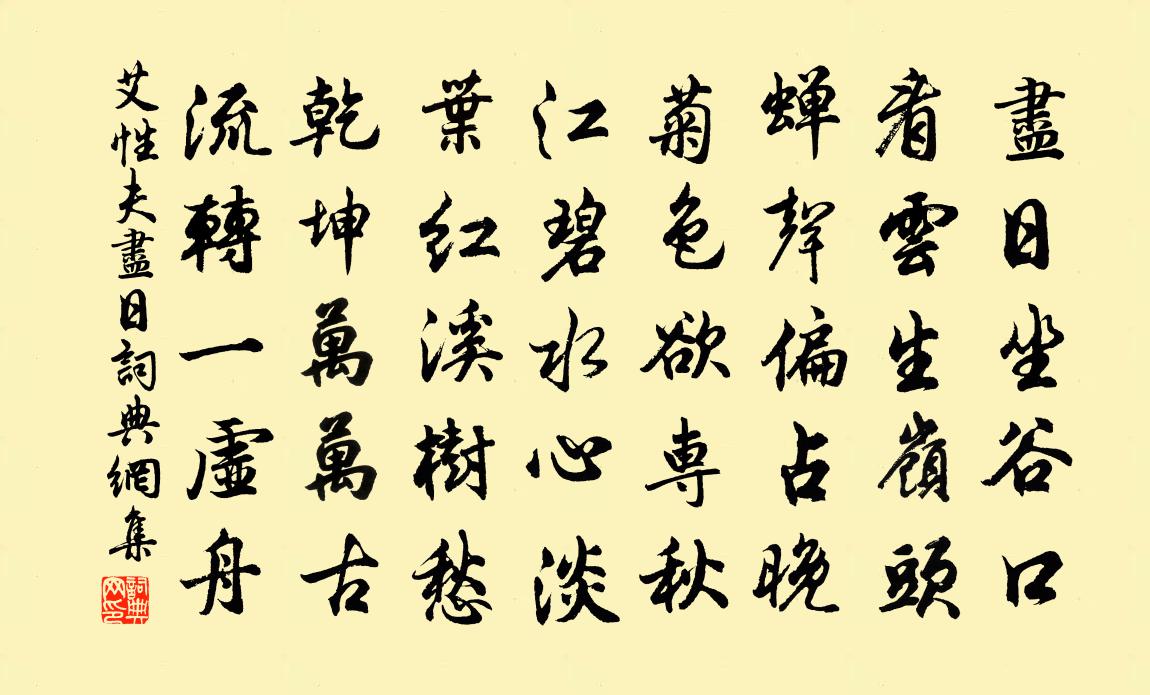 盡日坐谷口
看雲生嶺頭
蟬聲偏占晚
菊色欲専秋
江碧水心淡
葉紅溪樹愁
乾坤萬萬古
流轉一虛舟
艾性夫盡日詞典網集
詞典